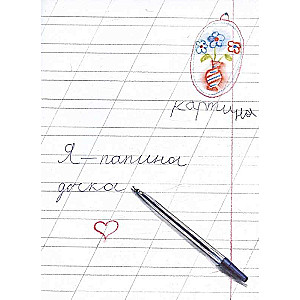 картина
Я — папина
дочка